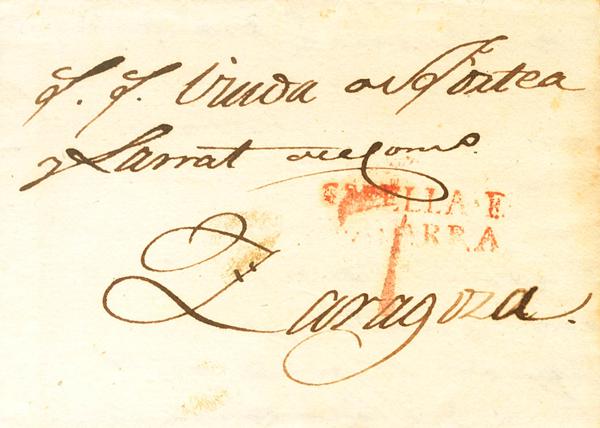 S. S. Viuda de Fortea
y Larrat del Como.
ESTELLA E
NAVARRA
Zaragoza.